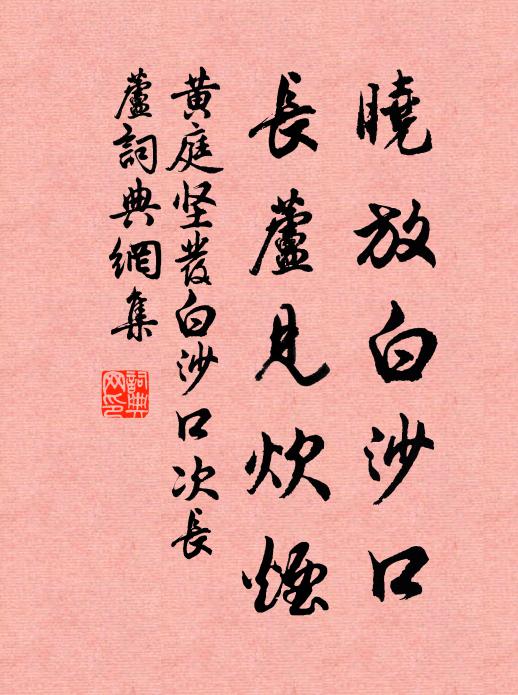 曉放白沙口
長蘆見炊煙
黄庭坚發白沙口次長
蘆詞典網集
詞典
网印